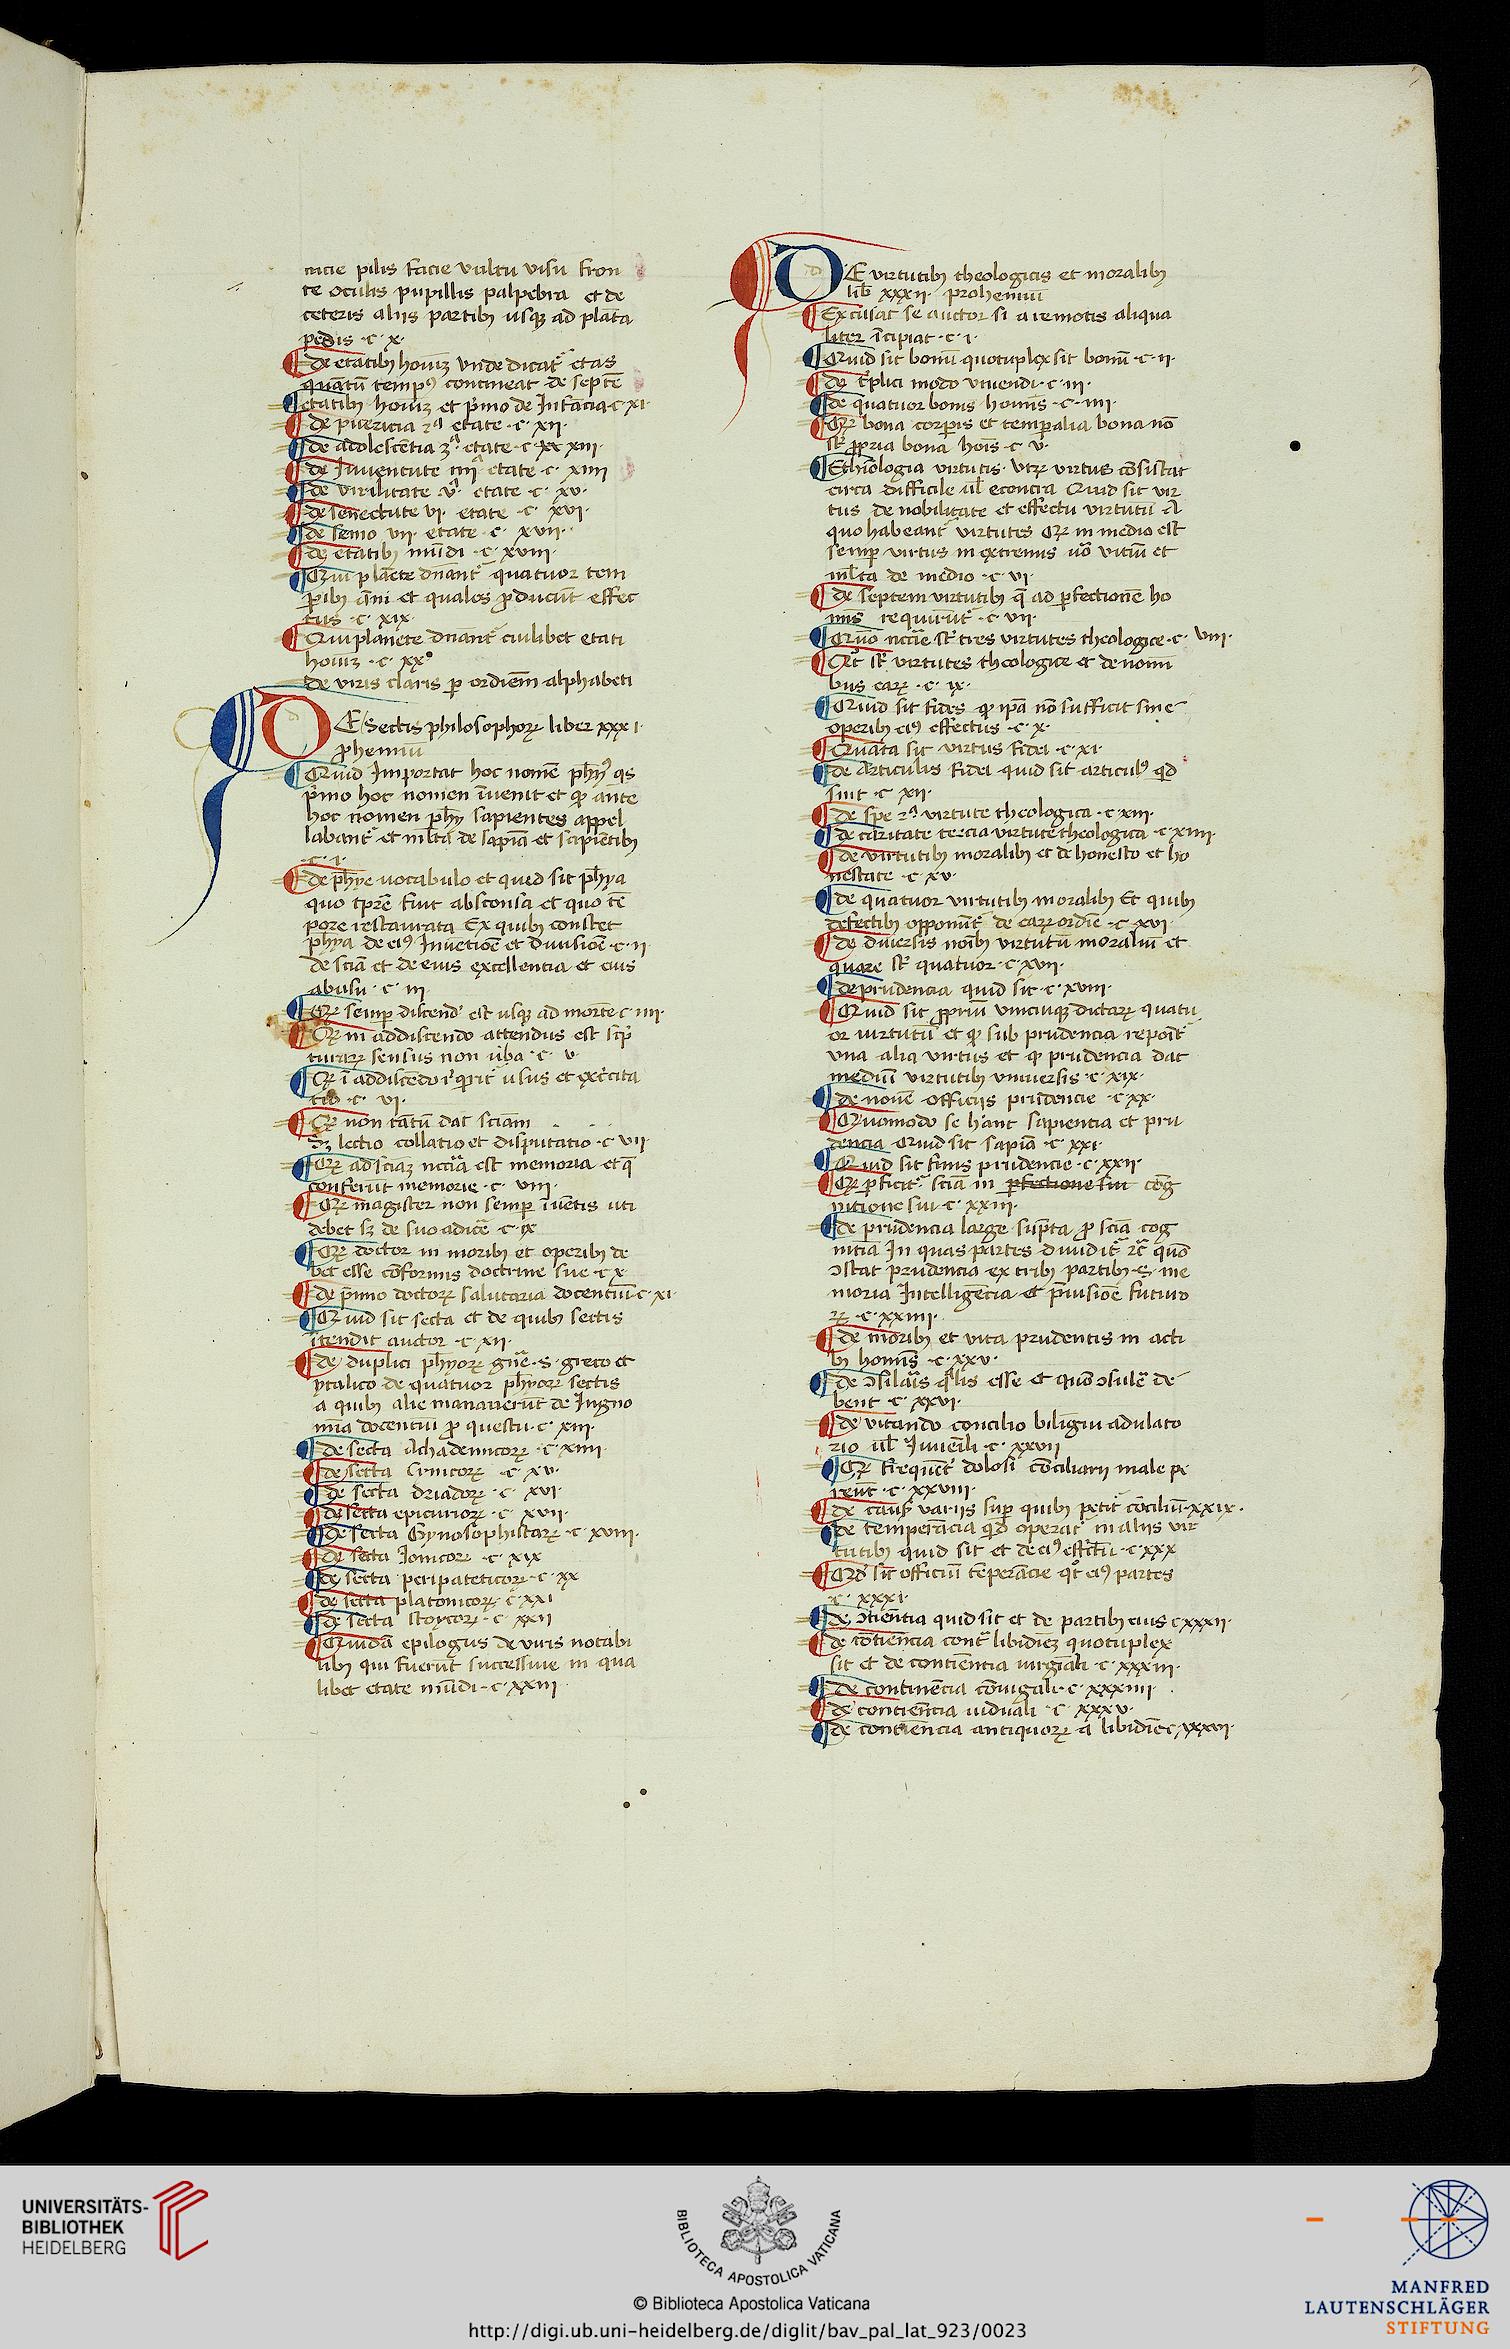 tucie pilis facie vultu visu fron
te oculis pupillis palpebra et de
ceteris aliis partibꝫ usqꝫ ad plāta
pedis · c · x ·
de etatibꝫ hoīuꝫ vnde dicat᷑ etas
quātū tempꝰ contineat de septē
etatibꝫ hoīuꝫ et p̄mo de Infācia · c · xi ·
de puericia 2ᵃ etate · c · xii ·
de adolescētia 3ᵃ etate · c · xiii ·
de Iuuentute iiiiᵃ etate · c · xiiii
de virilitate vᵃ etate · c · xv ·
de senectute vi · etate · c · xvi ·
de senio vii · etate · c · xvii ·
de etatibꝫ mūdi · c · xviii ·
Qui planete dn̄ant᷑ quatuor tem
ꝑibꝫ āni et quales ꝓducūt effec
tus · c · xix ·
Qui planete dn̄ant᷑ cuilibet etati
hoīuꝫ · c · xxᵒ
de viris claris ꝑ ordinem alphabeti
DE Sectis philosophoꝝ liber xxxi ·
ꝓhemiū
Quid Importat hoc nomē ph̄ꝰ qs
p̄mo hoc nomen īuenit et ꝙ ante
hoc nomen ph̄i sapientes appel
labant᷑ et ml̄ta de sapīa et sapiētibꝫ
· c · i ·
de ph̄ye uocabulo et quid sit ph̄ya
quo tp̄re fuit absconsa et quo tē
pore restaurata Ex quibꝫ constet
ph̄ya de eiꝰ Inuētiōe et Diuisiōe · c · ii
de scīa et de eius excellentia et eius
abusu · c · iii
Qꝝ semꝑ discend᷑ est usqꝫ ad mortē c · iiii ·
Qꝝ in addiscendo attendus est scp̄
turaꝝ sensus non ūba · c · v
Qꝝ ī addiscēdo reqrit᷑ usus et exercita
tio · c · vi ·
Qꝝ non tātū dat scīam
sꝫ lectio collatio et disputatio · c · vii ·
Qꝝ ad scīaꝫ nccīa est memoria et q̄
conferūt memorie · c · viii ·
Qꝝ magister non semꝑ īuētis uti
debet sꝫ de suo adicē · c · ix
Qꝝ doctor in moribꝫ et operibꝫ de
bet esse cōformis doctrine sue · c · x ·
de p̄mo doctoꝝ salutaria docentiū · c · xi ·
Quid sit secta et de quibꝫ sectis
ītendit auctor · c · xii ·
de duplici ph̄yoꝝ gn̄e · s · greco et
ytalico de quatuor ph̄yoꝝ sectis
a quibꝫ alie manauerūt de Ingno
mīa docentiū ꝓ questu · c · xiii ·
de secta Achademicoꝝ · c · xiiii ·
de secta Cinicoꝝ · c · xv ·
de secta driadoꝝ · c · xvi ·
de secta epicurioꝝ · c · xvii ·
de secta Gynosophistaꝝ · c · xviii ·
de secta Ionicoꝝ · c · xix
de secta peripateticoꝝ · c · xx
de secta platonicoꝝ · c · xxi
de secta stoycoꝝ · c · xxii
Quidā epilogus de viris notabi
libꝫ qui fuerūt successiue in qua
libet etate mūdi · c · xxiii ·
DE virtutibꝫ theologicis et moralibꝫ
lib̄ xxxii · prohemiū
Excusat se auctor si a remotis aliqua
liter īcipiat · c · i ·
Quid sit bonū quotuplex sit bonū · c · ii ·
de t͛plici modo viuendi · c · iii ·
de quatuor bonis homīs · c · iiii ·
Qꝝ bona corꝑis et temꝑalia bona nō
st᷑ ꝓpria bona hoīs · c · v ·
Ethiologia virtutis · Vtꝝ virtus cōsistat
circa difficile ul̄ econtra Quid sit vir
tus de nobilitate et effectu virtutū A
quo habeant᷑ virtutes Qꝝ in medio est
semꝑ virtus in extremis uō vitiū et
ml̄ta de medio · c · vi ·
de septem virtutibꝫ q̄ ad ꝑfectionē ho
mīs requirūt᷑ · c · vii ·
Quō nccīe st᷑ tres virtutes theologice · c · viii ·
Qt᷑ st᷑ virtutes theologice et de nomi
bus eaꝝ · c · ix ·
Quid sit fides ꝙ ip̄a nō sufficit sine
operibꝫ eiꝰ effectus · c · x ·
Quāta sit virtus fidei · c · xi ·
de Articulis fidei quid sit articulꝰ qd̄
sint · c · xii ·
de spe 2ᵃ virtute theologica · c · xiii ·
de caritate tercia virtute theologica · c · xiiii ·
de virtutibꝫ moralibꝫ et de honesto et ho
nestate · c · xv ·
de quatuor virtutibꝫ moralibꝫ Et quibꝫ
defectibꝫ opponūt᷑ de eaꝝ ordīe · c · xvi ·
de diuersis noībꝫ virtutū moraliū et
quare st᷑ quatuor · c · xvii ·
de prudencia quid sit · c · xviii ·
Quid sit ꝓpriū vniciuqꝫ dictaꝝ quatu
or virtutū et ꝙ sub prudencia reponit᷑
vna alia virtus et ꝙ prudencia dat
mediū virtutibꝫ vniuersis · c · xix ·
de nouē officiis prudencie · c · xx ·
Quomodo se hāt sapiencia et pru
dencia Quid sit sapīa · c · xxi ·
Quid sit finis prudencie · c · xxii ·
Qꝝ ꝑficit᷑ scīa in ꝑfectione sui cōg
nitione sui · c · xxiii ·
de prudencia large sūpta ꝓ scīa cog
nitīa In quas partes diuidit᷑ 2ᶜ quō
ↄstat prudencia ex tribꝫ partibꝫ · S · me
moria Intelligēcia et p̄uisiōe futuro
ꝝ · c · xxiiii ·
de moribꝫ et vita prudentis in acti
bꝫ homīs · c · xxv ·
de ↄsiliāis qlis esse et quō ↄsulē de
bent · c · xxvi ·
de vitando concilio biligui adulato
rio ul̄ Iuuēili · c · xxvii
Qꝝ frequēt᷑ dolosi cōciliarii male pe
reūt · c · xxviii ·
de causꝫ variis suꝑ quibꝫ petit᷑ cōciliū · xxix ·
de temperācia qd̄ operat᷑ in aliis vir
tutibꝫ quid sit et de eiꝰ effc̄tu · c · xxx
Qd̄ sit officiū tēperācie qt᷑ eiꝰ partes
· c · xxxi ·
de ↄtinētia quid sit et de partibꝫ eius c xxxii ·
de cōtiēncia cont᷑ libidīeꝫ quotuplex
sit et de contiēntia uirgīali · c · xxxiii ·
de continēcia cōiugali · c · xxxiiii ·
de contiēncia uiduali · c · xxxv ·
de contiēncia antiquoꝝ a libidīe c · xxxvi ·
UNIVERSITÄTS-
BIBLIOTHEK
HEIDELBERG
BIBLIOTECA APOSTOLICA VATICANA
© Biblioteca Apostolica Vaticana
http://digi.ub.uni-heidelberg.de/diglit/bav_pal_lat_923/0023
MANFRED
LAUTENSCHLÄGER
STIFTUNG